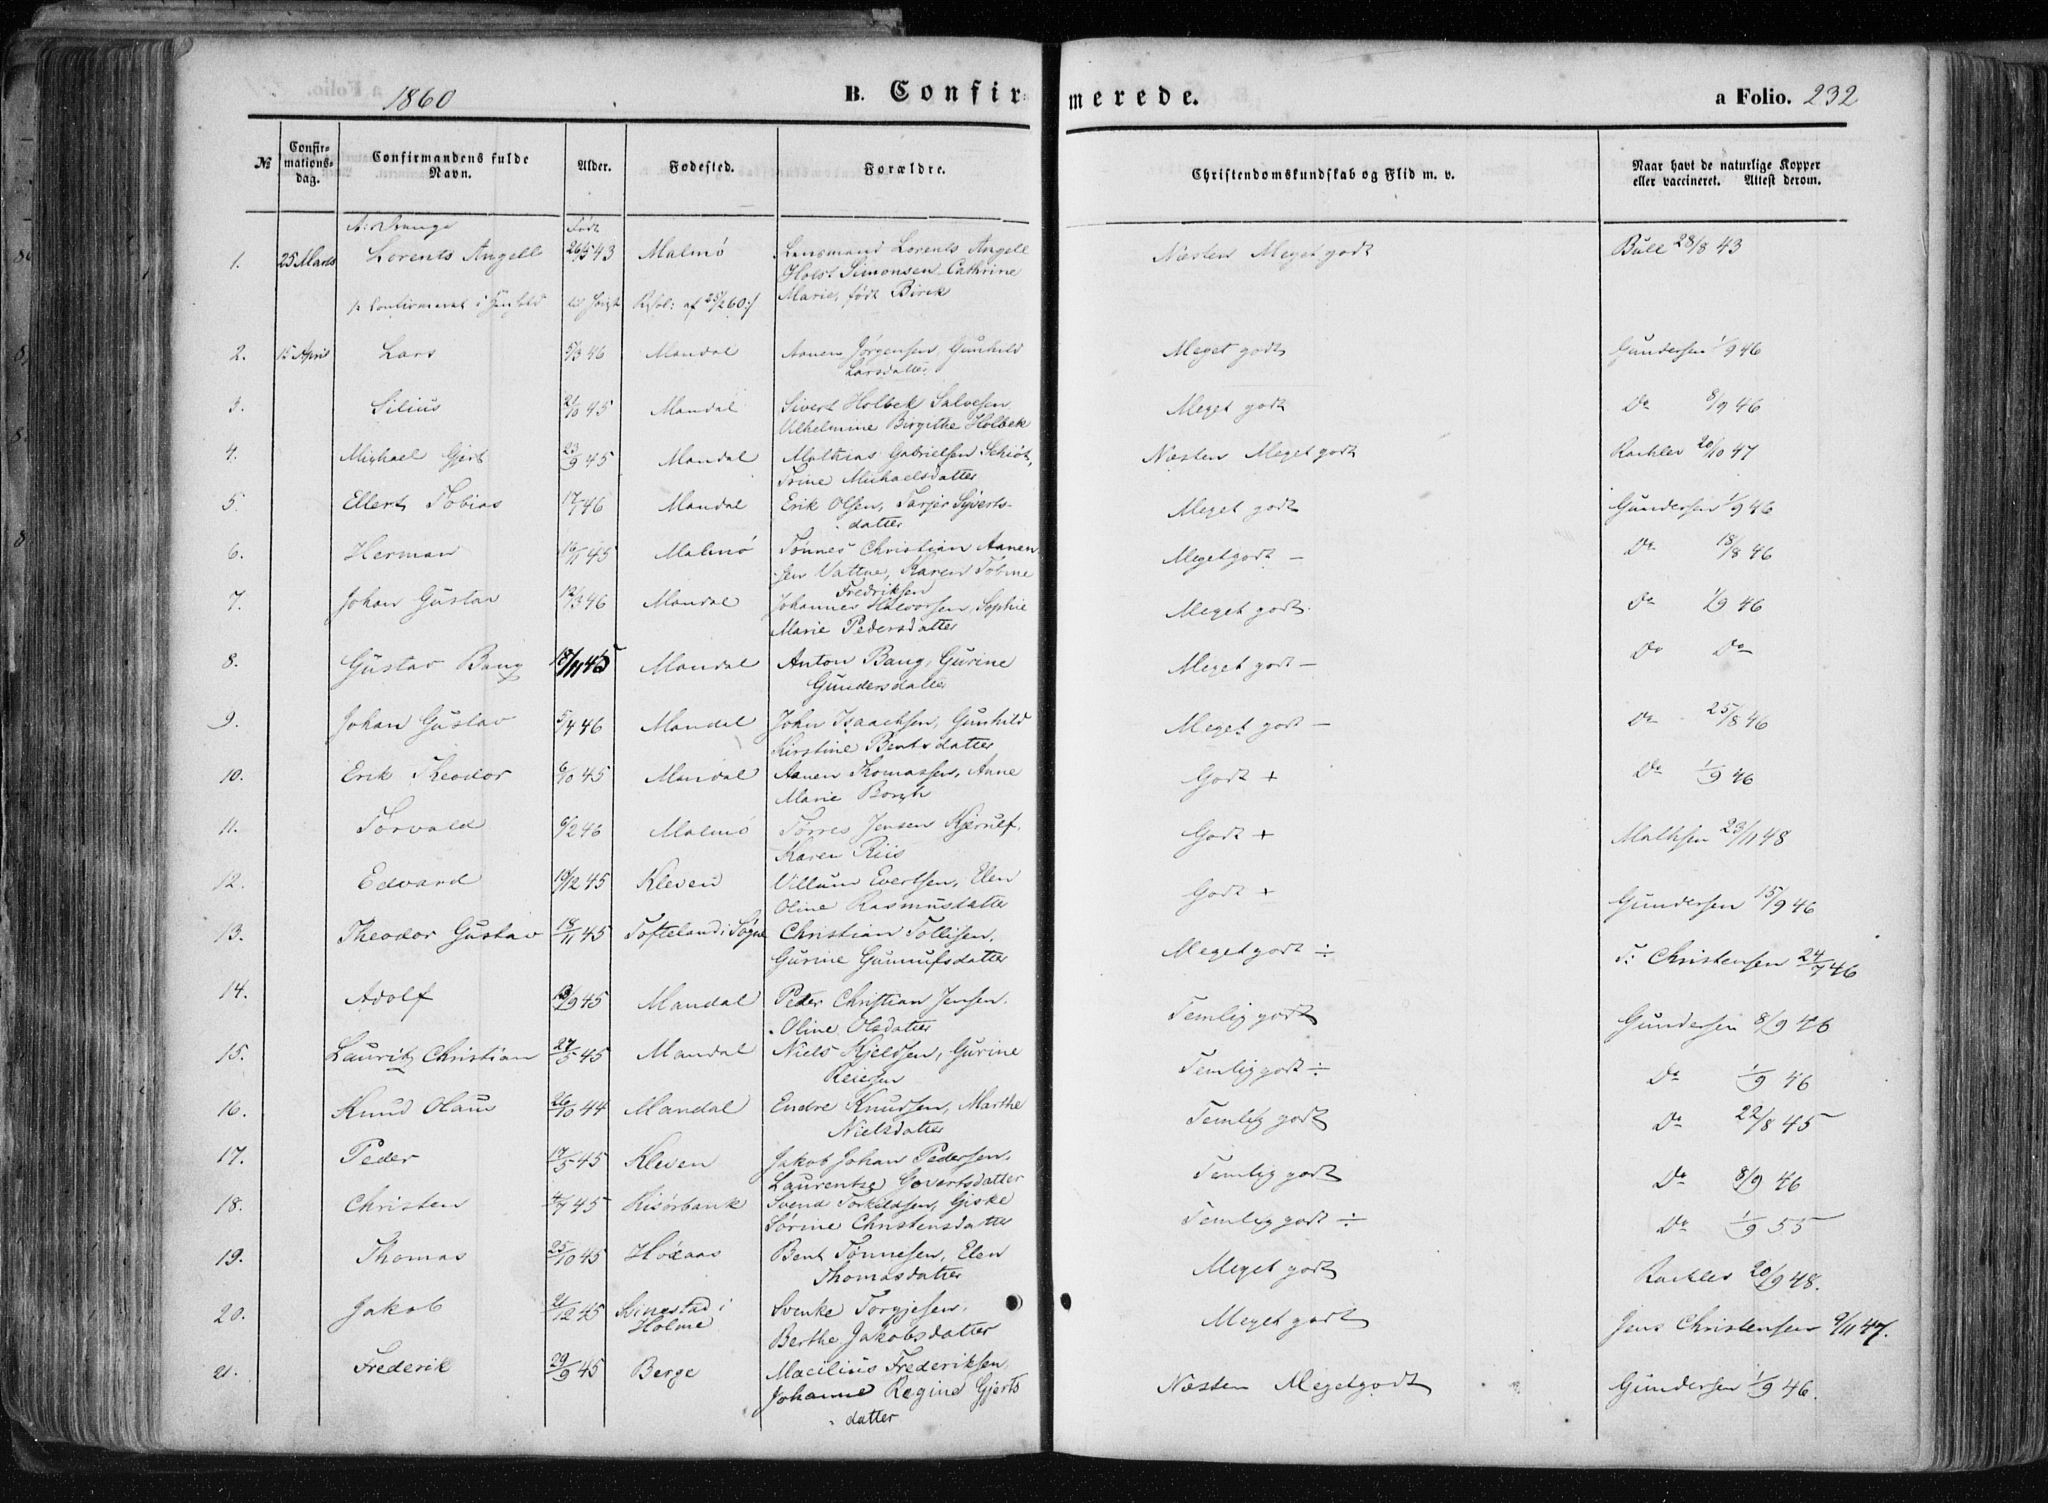 1860 B. Confirmerede. a Folio. 232
№ Confirmationsdag. Confirmandens fulde Navn. Alder. Fødested. Forældre. Christendomskundskab og Flid m. v. Naar havt de naturlige Kopper eller vaccineret. Attest derom.
A: Drenge Født
1. 25 Marts Lorents Angell 26/5 43 Malmø Lensmand Lorents Angell Næsten Meget godt Bull 28/8 43
Holst Simonsen Cathrine
Marie, født Birck
/: Confirmeret i Henhold til høist Resol: af 25/2 60:/
2. 15 April Lars 5/3 46 Mandal Aanen Jørgensen, Gunhild Meget godt Gundersen 1/9 46
Larsdatter
3. Silius 21/10 45 Mandal Sivert Holbek Salvesen Meget godt Do 8/9 46
Vilhelmine Birgithe Holbek
4. Michael Gjert 23/9 45 Mandal Mathias Gabrielsen Schiöt, Næsten Meget godt Rachlev 20/10 47
Trine Michaelsdatter
5. Ellert Tobias 17/ 46 Mandal Erik Olsen, Tarjer Sjverts- Meget godt Gundersen 1/9 46
datter
6. Herman 16/11 45 Malmø Tønnes Christian Aanen- Meget godt — Do 18/8 46
sen Vattne, Karen Tobine
Fredriksen
7. Johan Gustav 12/3 46 Mandal Johannes Halvorsen, Sophie Meget godt Do 1/9 46
Marie Pedersdatter
8. Gustav Bang 17/11 45 Mandal Anton Bang, Gurine Meget godt — Do Do
Gundersdatter
9. Johan Gustav 5/4 46 Mandal John Isaachsen, Gunhild Meget godt — Do 25/8 46
Kirstine Bentsdatter
10. Erik Theodor 6/10 45 Mandal Aanen Thomassen, Anne Godt + Do 1/9 46
Marie Borgh
11. Torvald 6/2 46 Malmø Torres Jensen Kjerulf, Godt + Mathsen 23/11 48
Karen Riis
12. Edvard 19/12 45 Kleven Villum Evertsen, Elen Godt + Gundersen 15/9 46
Oline Rasmusdatter
13. Theodor Gustav 18/11 45 Tofteland i Søgne Christian Tollisen, Meget godt ÷ T: Christensen 24/7 46
Gurine Gunnufsdatter
14. Adolf 13/9 45 Mandal Peder Christian Jensen, Temlig godt Gundersen 8/9 46
Oline Olsdatter
15. Lauritz Christian 27/5 45 Mandal Niels Kjeldsen, Gurine Temlig godt ÷ Do 1/9 46
Reiersen
16. Knud Olaus 26/10 44 Mandal Endre Knudsen, Marthe Temlig godt Do 22/8 45
Nielsdatter
17. Peder 17/5 45 Kleven Jakob Johan Pedersen, Temlig godt Do 8/9 46
Laurentze Govertsdatter
18. Christen 4/7 45 Risørbank Svend Torkildsen, Giske Temlig godt ÷ Do 1/9 55
Sørine Christensdatter
19. Thomas 25/10 45 Hödaas Bent Tønnesen, Elen Meget godt Rachlev 20/9 48.
Thomasdatter
20. Jakob 21/12 45 Skingstad i Svenke Torgjesen, Meget godt Jens Christensen 9/11 47.
Holme Berthe Jakobsdatter
21. Frederik 29/9 45 Berge Macilius Frederiksen, Næsten Meget godt Gundersen 1/9 46.
Johanne Regine Gjerts
datter